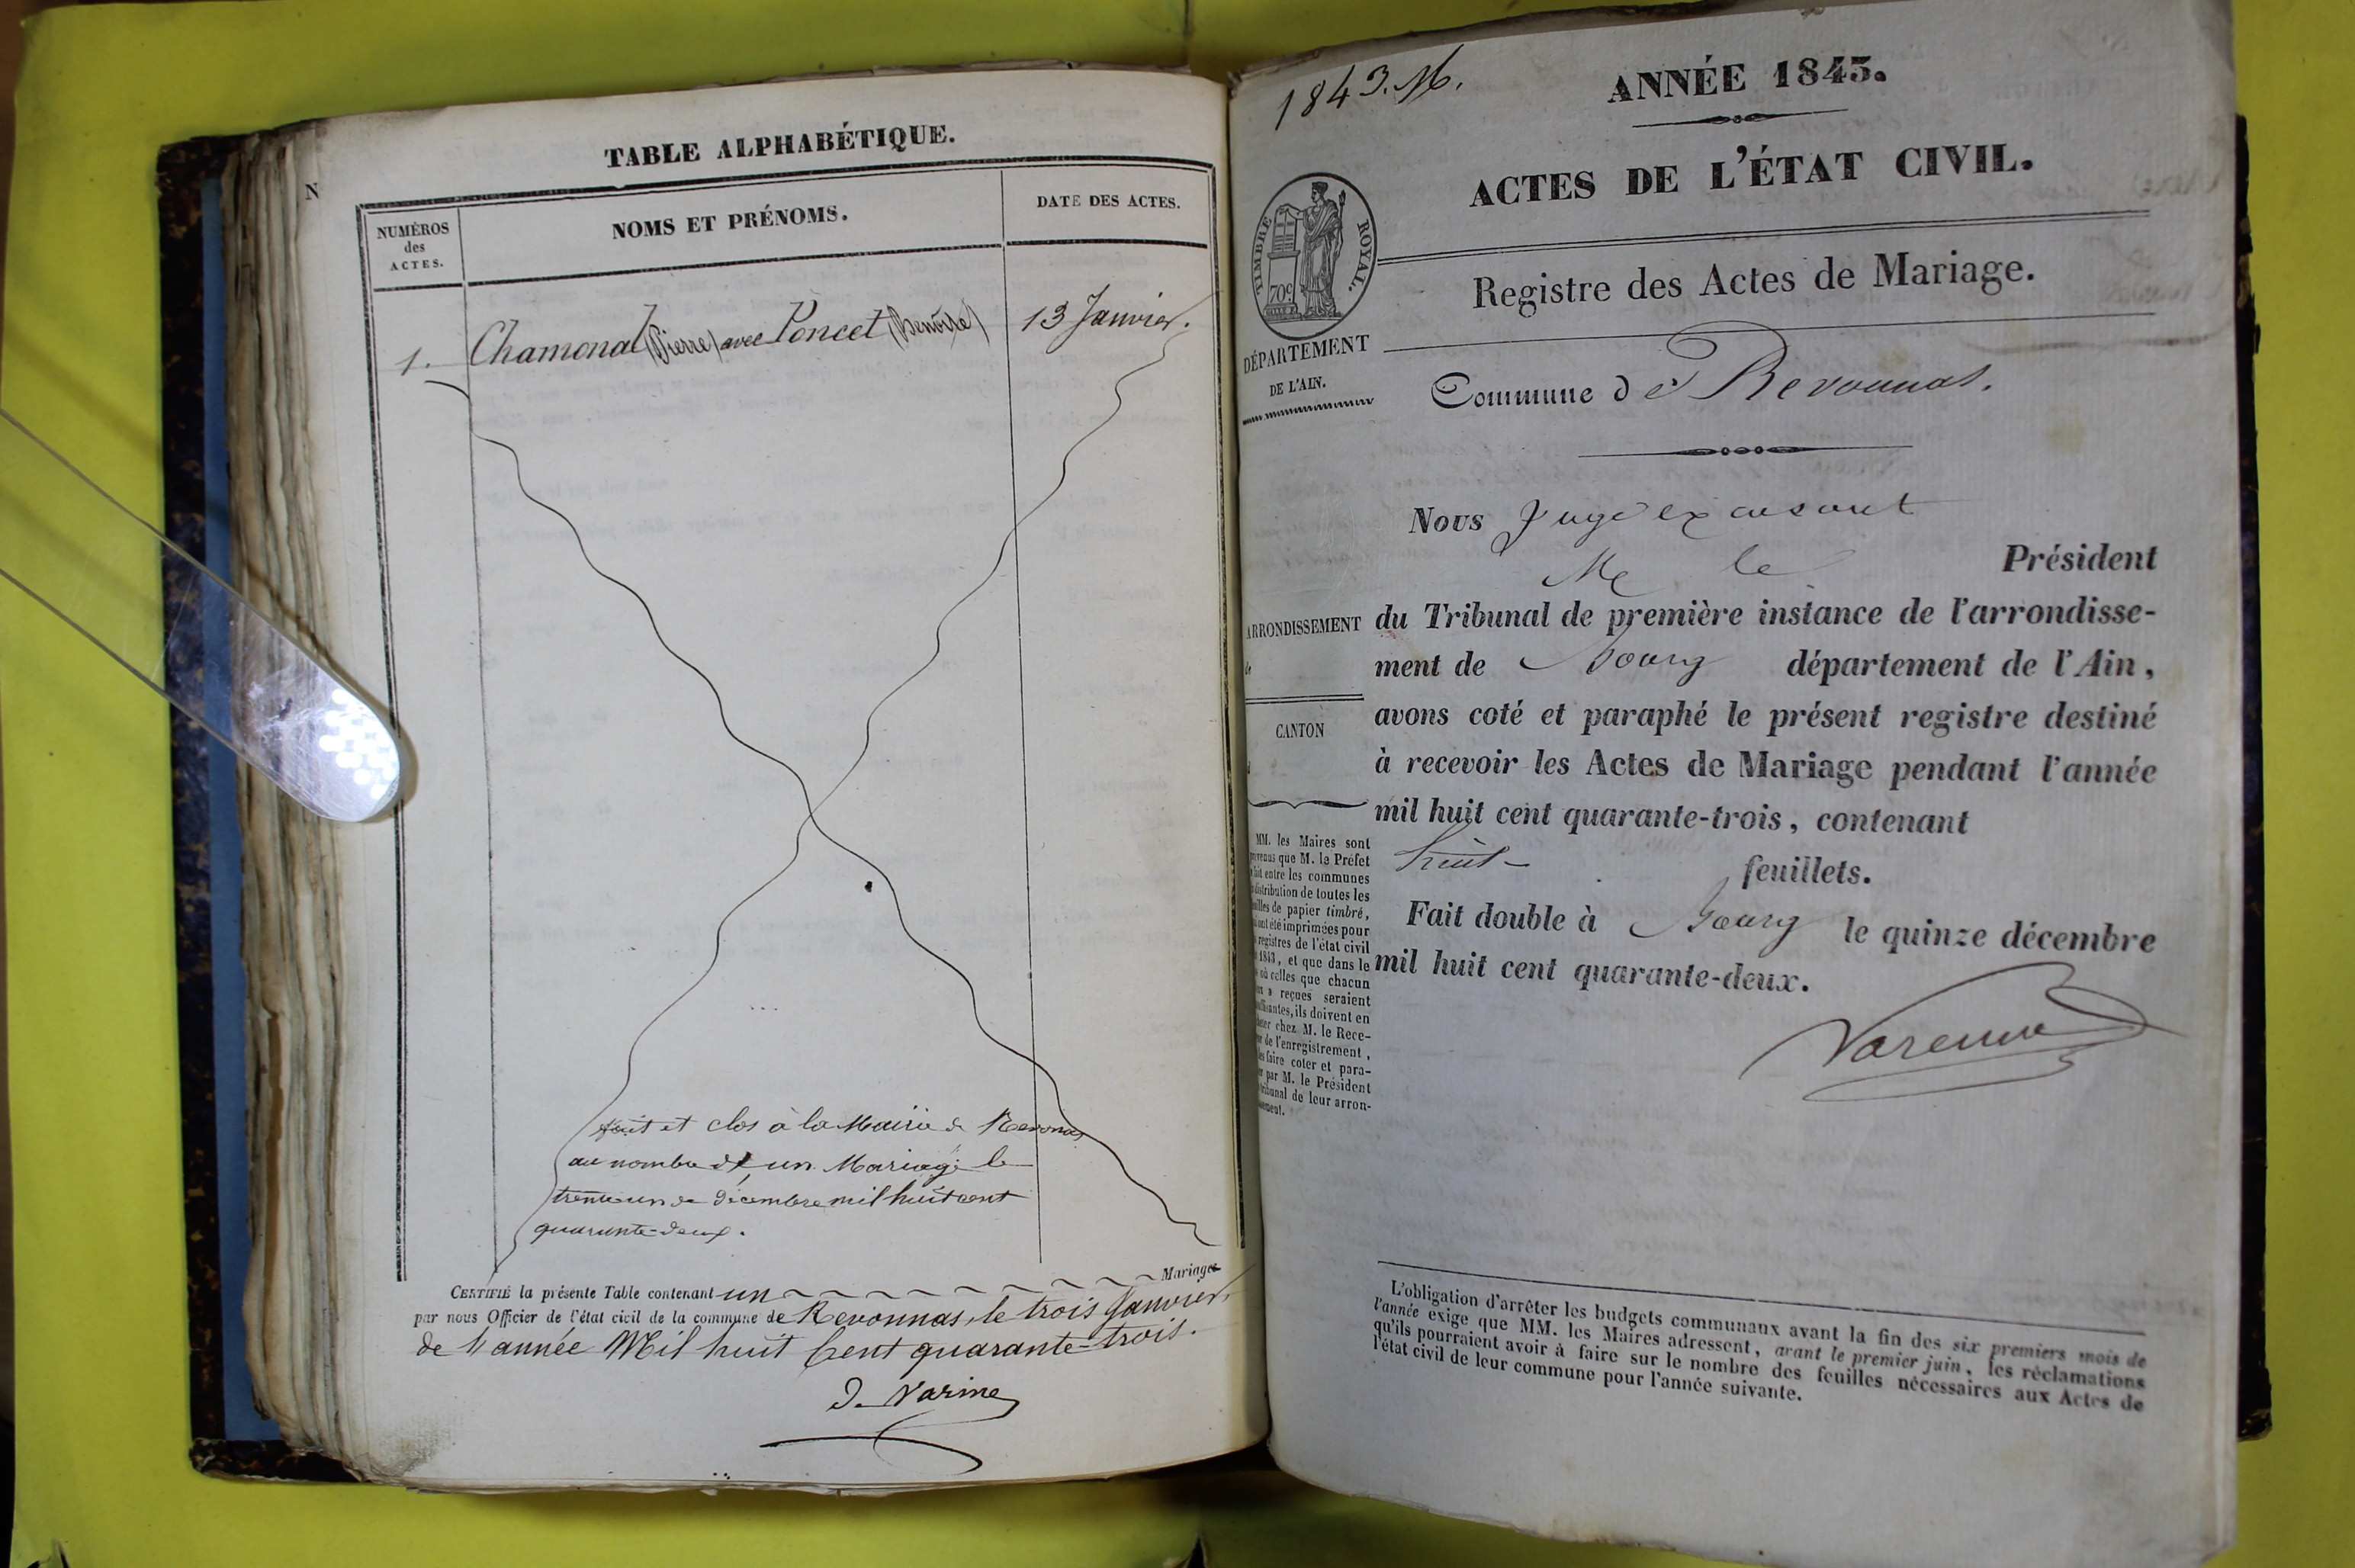 N
TABLE ALPHABÉTIQUE.
NUMÉROS
des
ACTES.
NOMS ET PRÉNOMS.
DATE DES ACTES.
1. Chamonal (Pierre) avec Poncet (Benoîte) 13 Janvier.
fait et clos à la Mairie de Revonas
au nombre de un Mariage le
trente un de décembre mil huit cent
quarante-deux.
CERTIFIÉ la présente Table contenant un Mariages
par nous Officier de l'état civil de la commune de Revonnas, le trois Janvier,
de l'année Mil huit Cent quarante-trois.
D. Varine
1843. M.
ANNÉE 1843.
ACTES DE L'ÉTAT CIVIL.
TIMBRE ROYAL.
70c
Registre des Actes de Mariage.
DÉPARTEMENT
DE L'AIN.
Commune de Revonnas.
Nous Juge excusant
Mr le Président
ARRONDISSEMENT
de
CANTON
du Tribunal de première instance de l'arrondisse-
ment de Bourg département de l'Ain,
avons coté et paraphé le présent registre destiné
à recevoir les Actes de Mariage pendant l'année
mil huit cent quarante-trois, contenant
huit feuillets.
Fait double à Bourg le quinze décembre
mil huit cent quarante-deux.
Varenne
MM. les Maires sont
que M. le Préfet
fait entre les communes
distribution de toutes les
de papier timbré,
ont été imprimées pour
registres de l'état civil
1843, et que dans le
où celles que chacun
a reçues seraient
ils doivent en
chez M. le Rece-
de l'enregistrement,
les faire coter et para-
par M. le Président
tribunal de leur arron-
L'obligation d'arrêter les budgets communaux avant la fin des six premiers mois de
l'année exige que MM. les Maires adressent, avant le premier juin, les réclamations
qu'ils pourraient avoir à faire sur le nombre des feuilles nécessaires aux Actes de
l'état civil de leur commune pour l'année suivante.